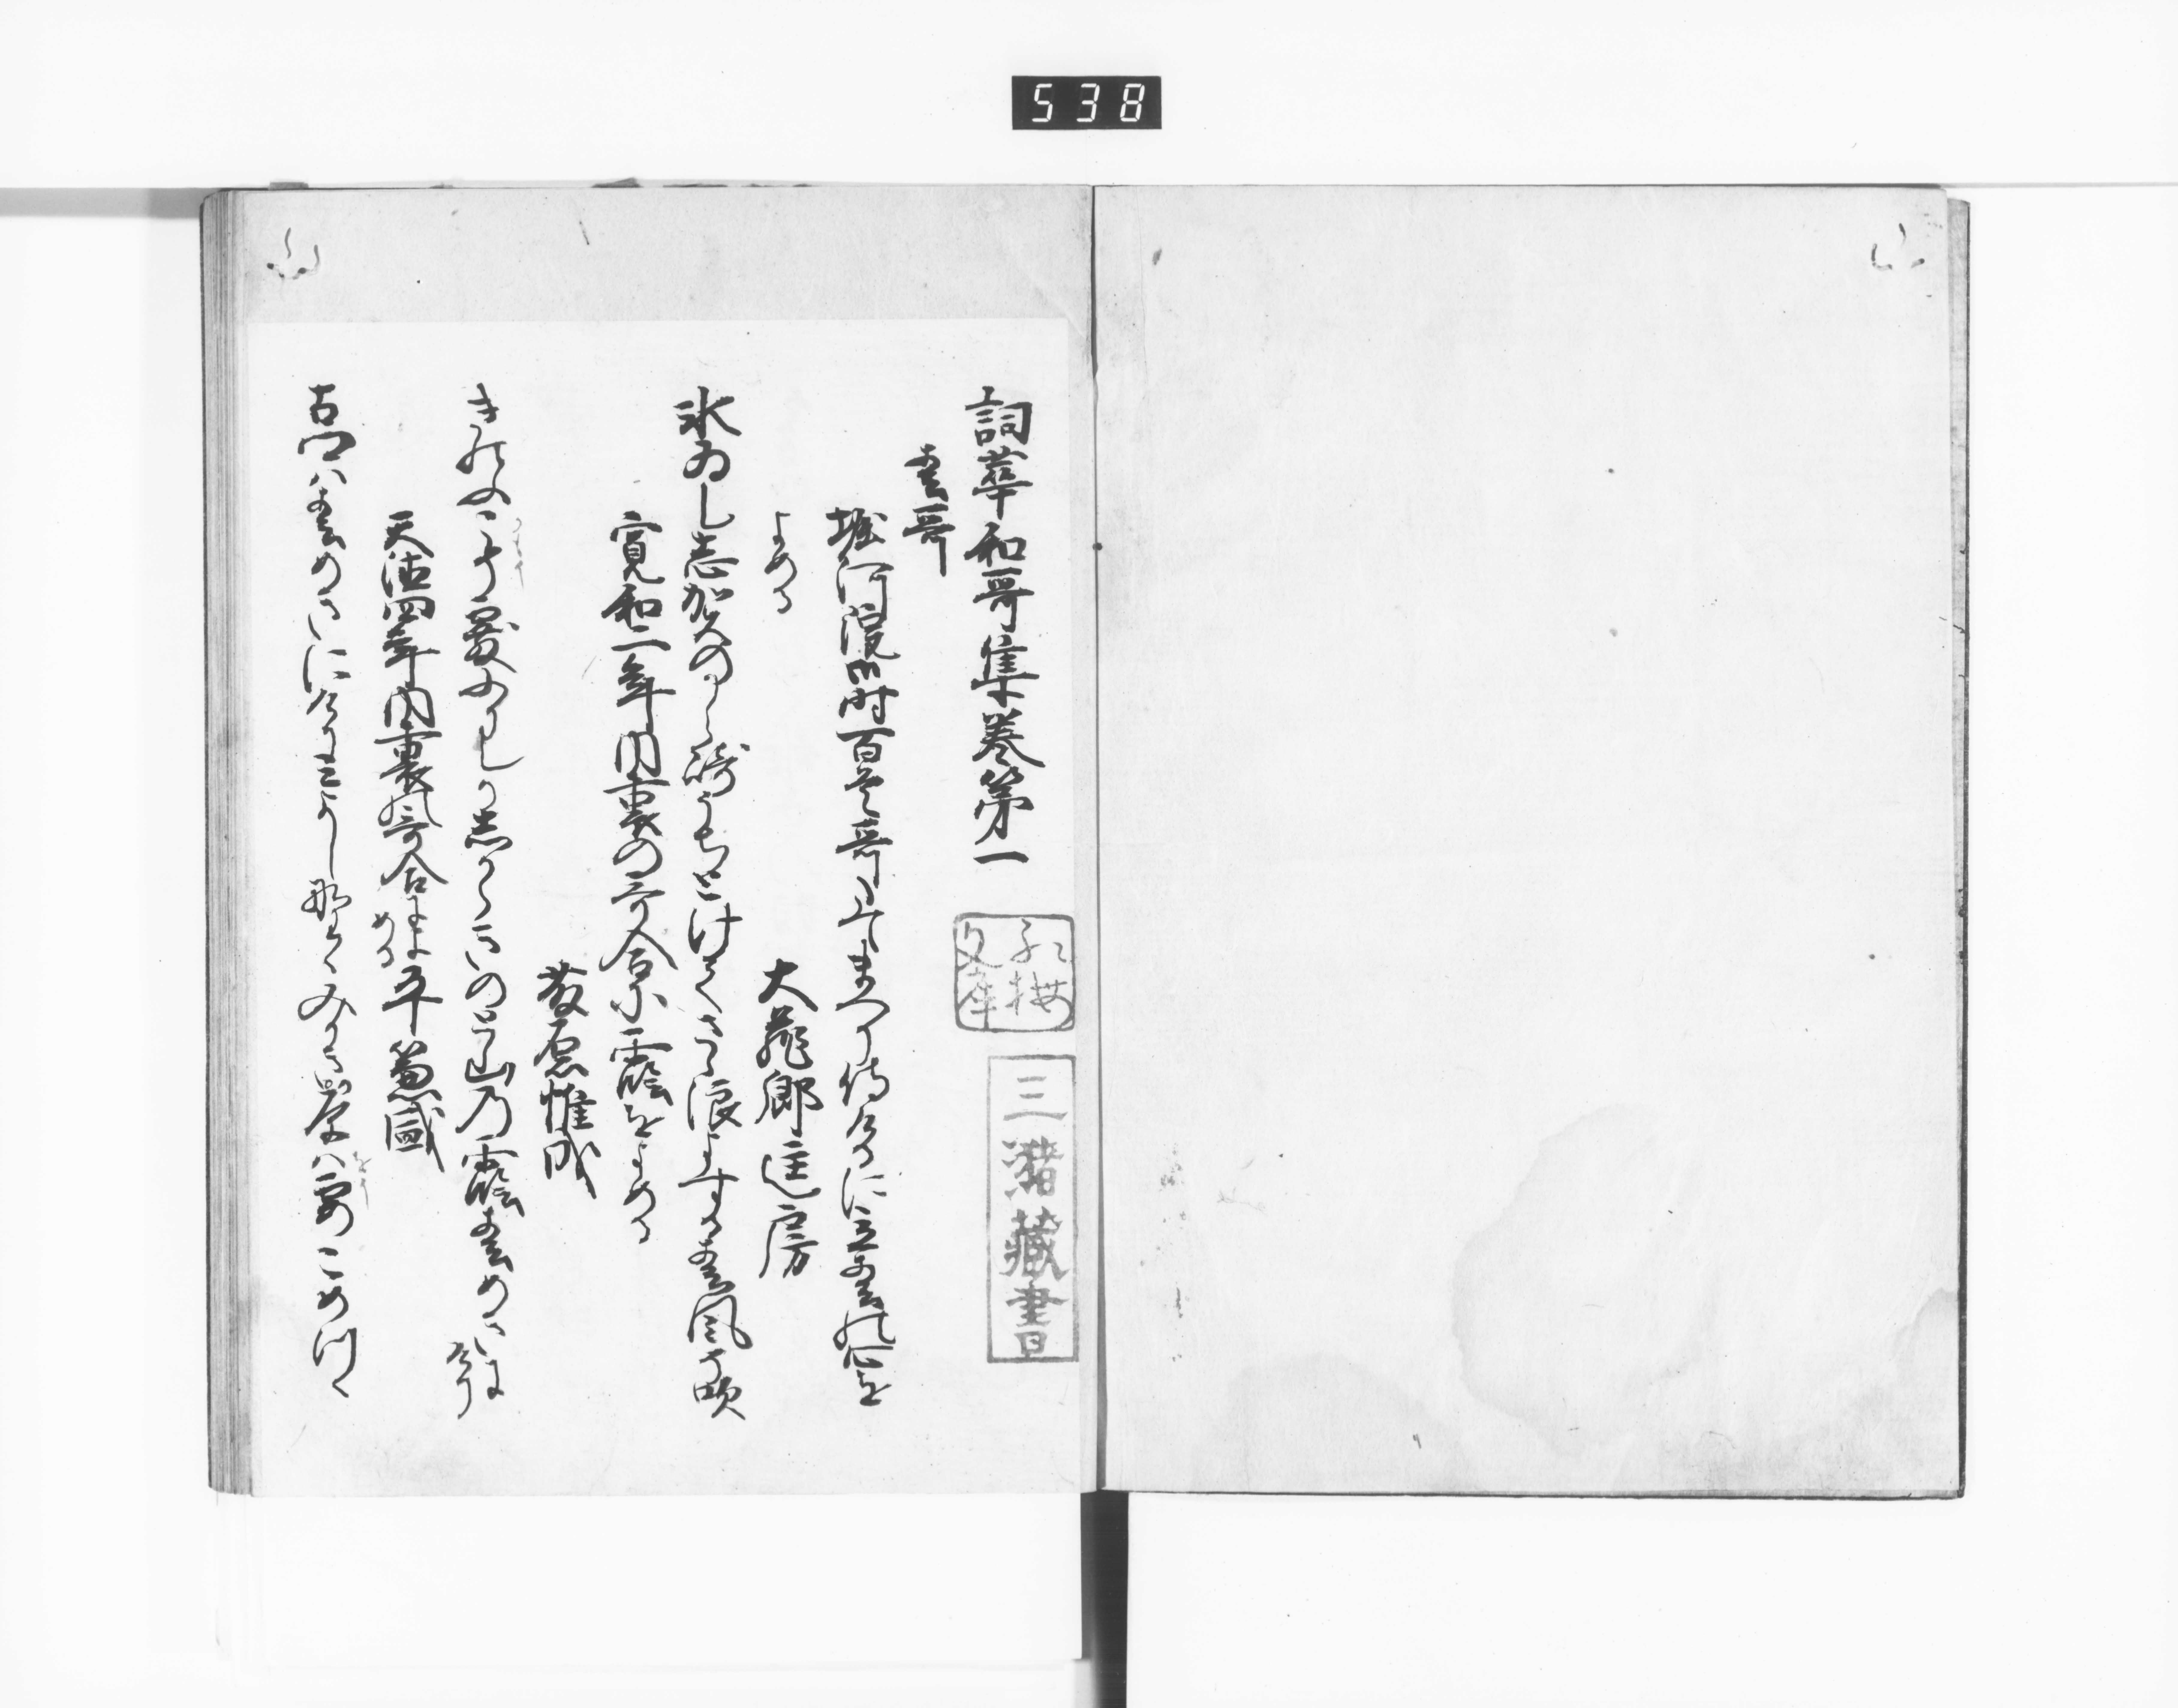 538
詞華和哥集巻第一
春哥
堀河院御時百首哥たてまつり侍けるに立春の心を
よめる
大蔵卿匡房
氷ゐし志賀のから崎うちとけてさゝ浪よする春風そ吹
寛和二年内裏の哥合に霞をよめる
藤原惟成
きのふかも霰ふりしか志からきのと山乃霞春めきにけり
天徳四年内裏哥合によめる 平兼盛
古郷ハ春めきにけりみよし野ゝみかきか原ハ霞こめつゝ
三潴蔵書